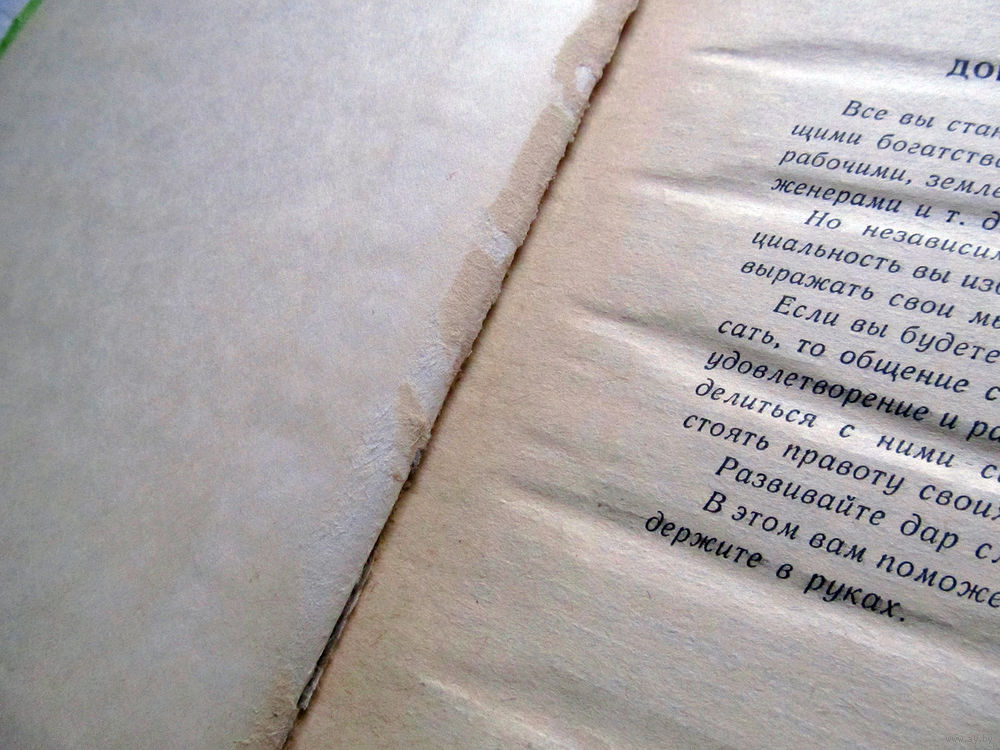 ДОР
Все вы стан
щими богатства
рабочими, земле
женерами и т. д
Но независим
циальность вы изб
выражать свои мы
Если вы будете
сать, то общение с
удовлетворение и ра
делиться с ними со
стоять правоту своих
Развивайте дар сл
В этом вам поможе
держите в руках.
www.ay.by